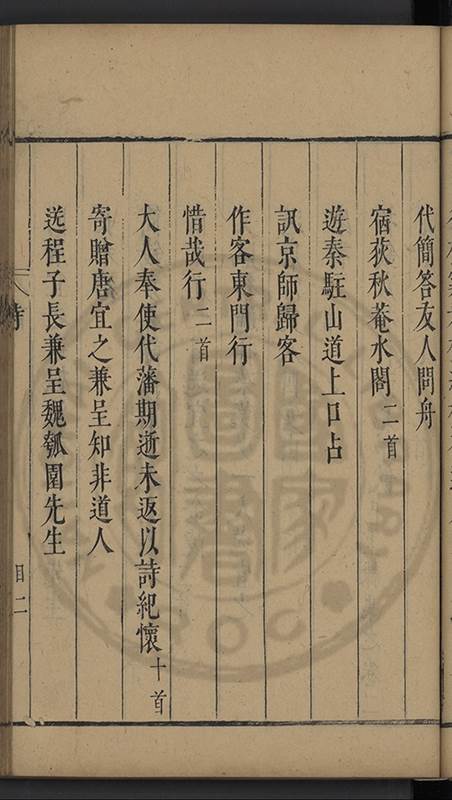 代簡答友人問舟
宿荻秋菴水閣二首
遊秦駐山道上口占
訊京師歸客
作客東門行
惜哉行二首
大人奉使代藩期逝未返以詩紀懷十首
寄贈唐宜之兼呈知非道人
送程子長兼呈魏瓠園先生
詩
目二